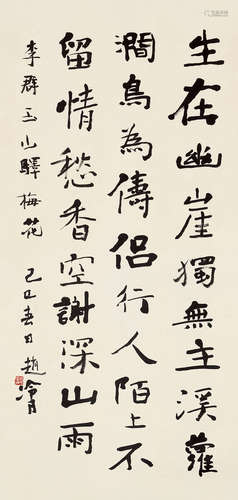 生在幽崖獨無主溪蘿
澗鳥為儔侶行人陌上不
留情愁香空謝深山雨
李群玉山驛梅花 己巳春日 趙冷月